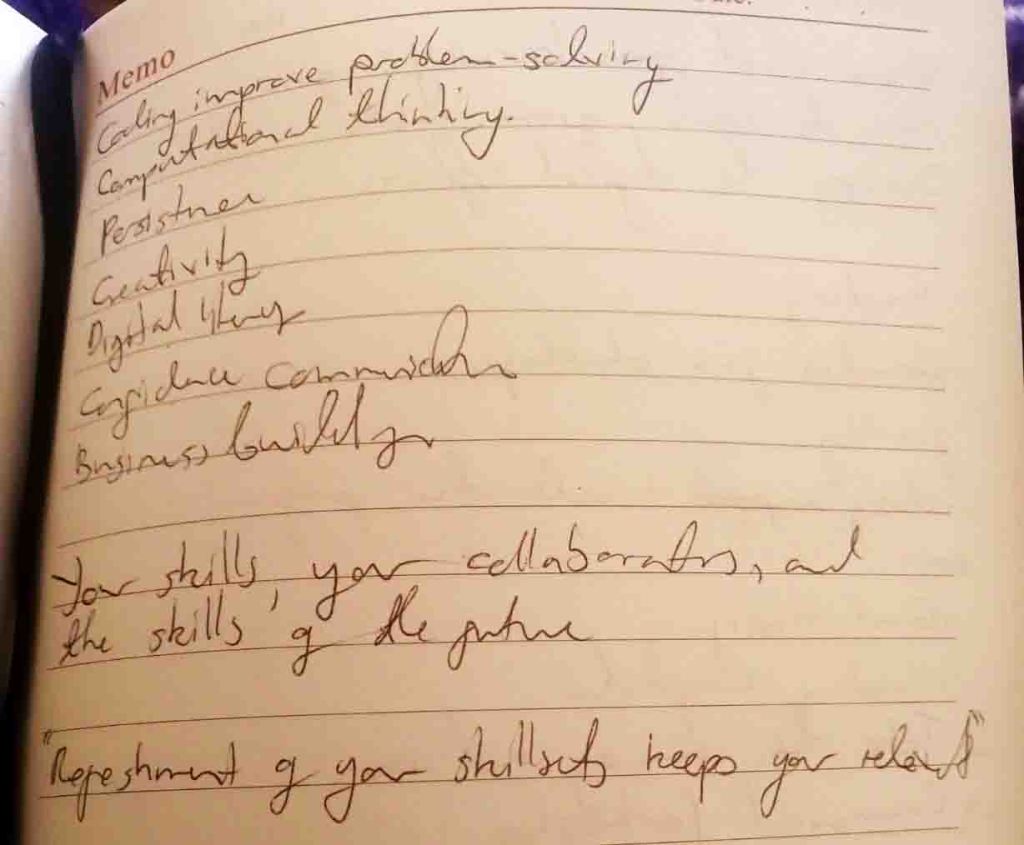 Memo
Coding improve problem-solving
Computational thinking.
Persistence
Creativity
Digital literacy
Confidence Communication
Business building
Your skills, your collaborators, and
the skills of the future
"Refreshment of your skillsets keeps your relevant"